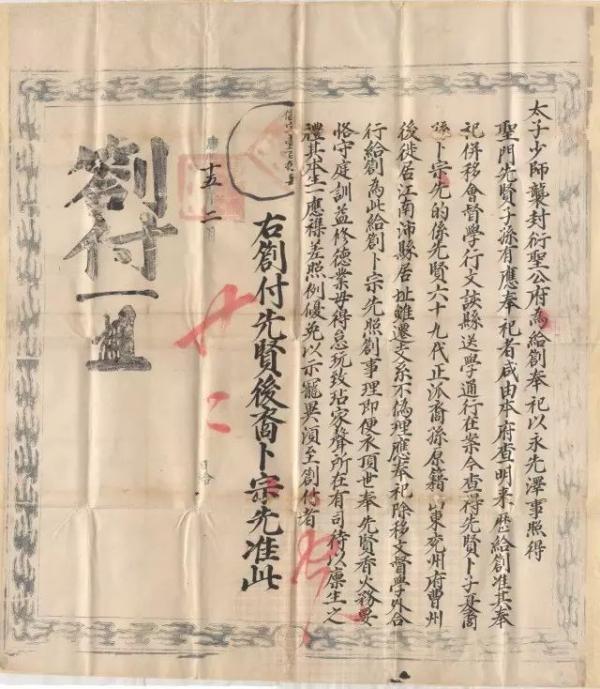 太子少師襲封衍聖公府為給劄奉祀以永先澤事照得
聖門先賢子孫有應奉祀者咸由本府查明来歷給劄准其奉
祀併移會督學行文該縣送學通行在案今查得先賢卜子夏裔
孫卜宗先的係先賢六十九代正派裔孫原籍山東兖州府曹州
後徙居江南沛縣居址雖遷支系不偽理應奉祀除移文督學外合
行給劄為此給劄卜宗先照劄事理即便承頂世奉先賢香火務要
恪守庭訓益修德業毋得怠玩致玷家聲所在有司待以廪生之
禮其本生一應襍差照例優免以示寵異須至劄付者
右劄付先賢後裔卜宗先准此
康
十五
二
廿二
劄付一